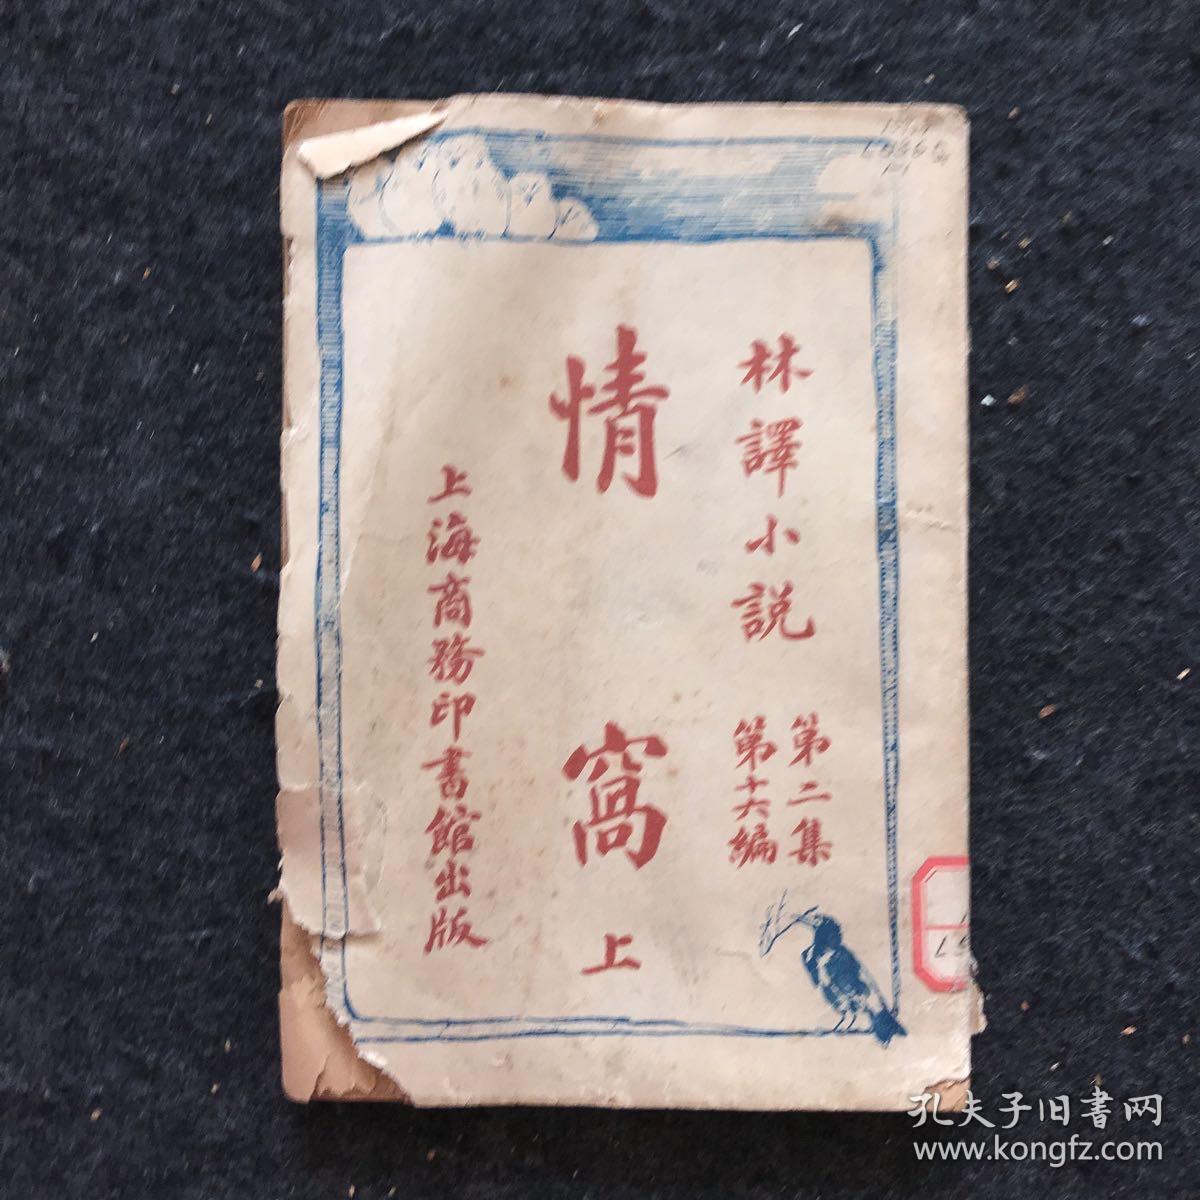 林譯小説
第二集
第十六編
情窩 上
上海商務印書館出版
孔夫子旧書网
www.kongfz.com